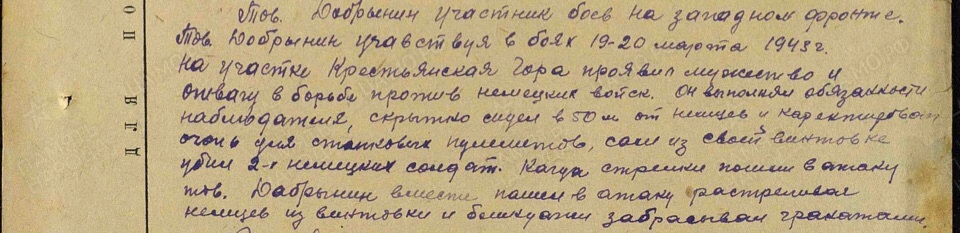 Тов. Добрынин участник боев на западном фронте.
Тов. Добрынин учавствуя в боях 19-20 марта 1943 г.
на участке Крестьянская Гора проявил мужество и
отвагу в борьбе против немецких войск. Он выполнял обязанности
наблюдателя, скрытно сидел в 50 м от немцев и каректировал
огонь для станковых пулеметов, сам из своей винтовке
убил 2-х немецких солдат. Когда стрелки пошли в атаку
тов. Добрынин вместе пошел в атаку растреливал
немцев из винтовки и забрасывал гранатами.
П
О
Д
Л
Я